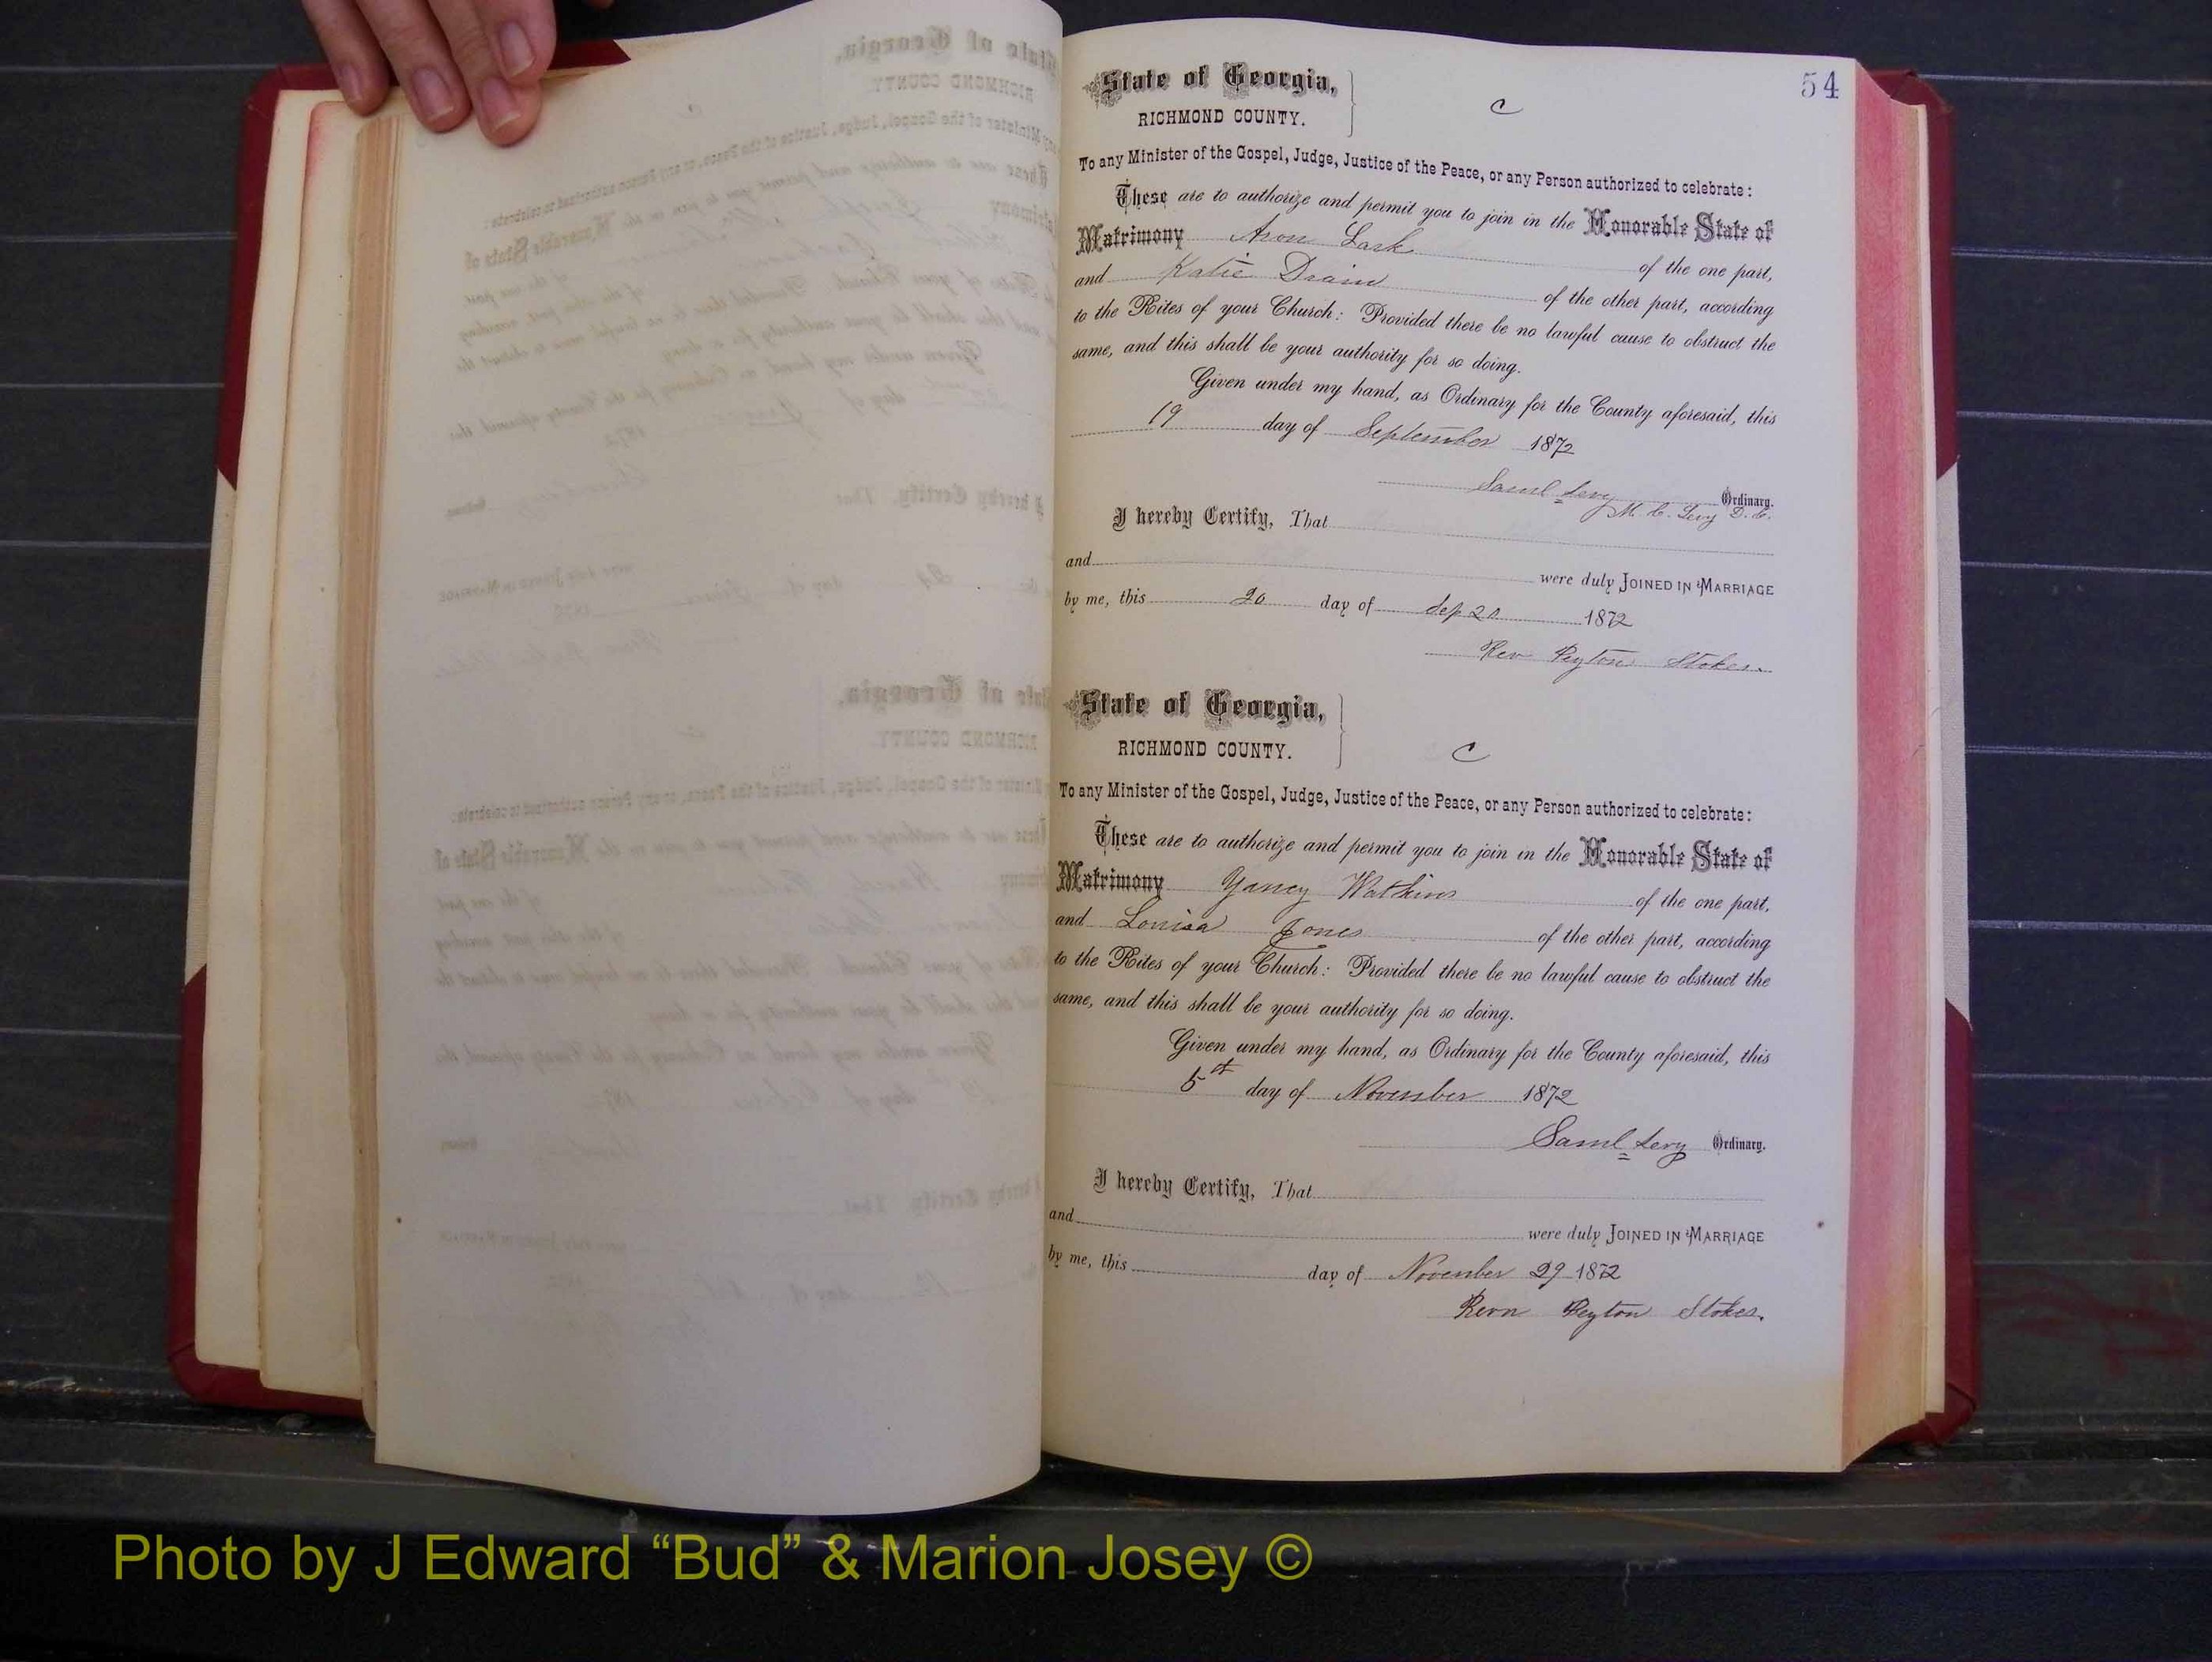 54
State of Georgia,
RICHMOND COUNTY.
C
To any Minister of the Gospel, Judge, Justice of the Peace, or any Person authorized to celebrate:
These are to authorize and permit you to join in the Honorable State of
Matrimony Aron Lark of the one part,
and Katie Drain of the other part, according
to the Rites of your Church: Provided there be no lawful cause to obstruct the
same, and this shall be your authority for so doing.
Given under my hand, as Ordinary for the County aforesaid, this
19 day of September 1872
Saml Levy Ordinary.
M. C. Levy D. C.
I hereby Certify, That
and were duly JOINED IN MARRIAGE
by me, this 20 day of Sep 20 1872
Rev Peyton Stokes.
State of Georgia,
RICHMOND COUNTY.
C
To any Minister of the Gospel, Judge, Justice of the Peace, or any Person authorized to celebrate:
These are to authorize and permit you to join in the Honorable State of
Matrimony Yancy Watkins of the one part,
and Louisa Jones of the other part, according
to the Rites of your Church: Provided there be no lawful cause to obstruct the
same, and this shall be your authority for so doing.
Given under my hand, as Ordinary for the County aforesaid, this
5th day of November 1872
Saml Levy Ordinary.
I hereby Certify, That
and were duly JOINED IN MARRIAGE
by me, this day of November 29 1872
Revn Peyton Stokes.
Photo by J Edward “Bud” & Marion Josey ©